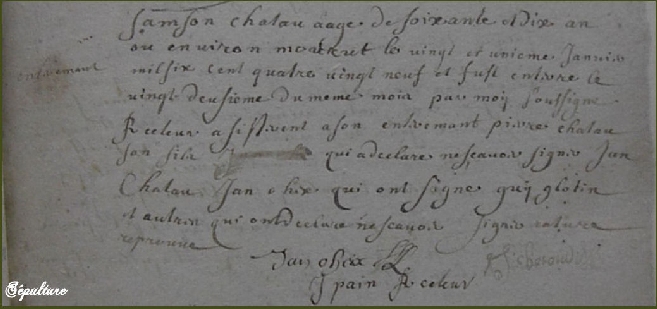 Samson chatau aage de soixante et dix an
ou environ mourut le vingt et unieme Janvie
enterement
mil six cent quatre vingt neuf et fust enterre le
vingt deusiome du meme mois par moy soussigne
Recteur asisterent a son enteremant pierre chatau
son fils qui a declare ne scavoir signe Jan
Chatau Jan ohix qui ont signe guy glotin
et autres qui ont declare ne scavoir signe rature
reprouve
Jan ohix
J pain Recteur
Sépulture